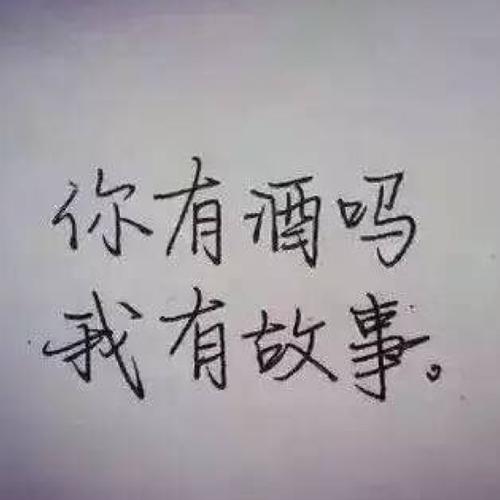 你有酒吗
我有故事。